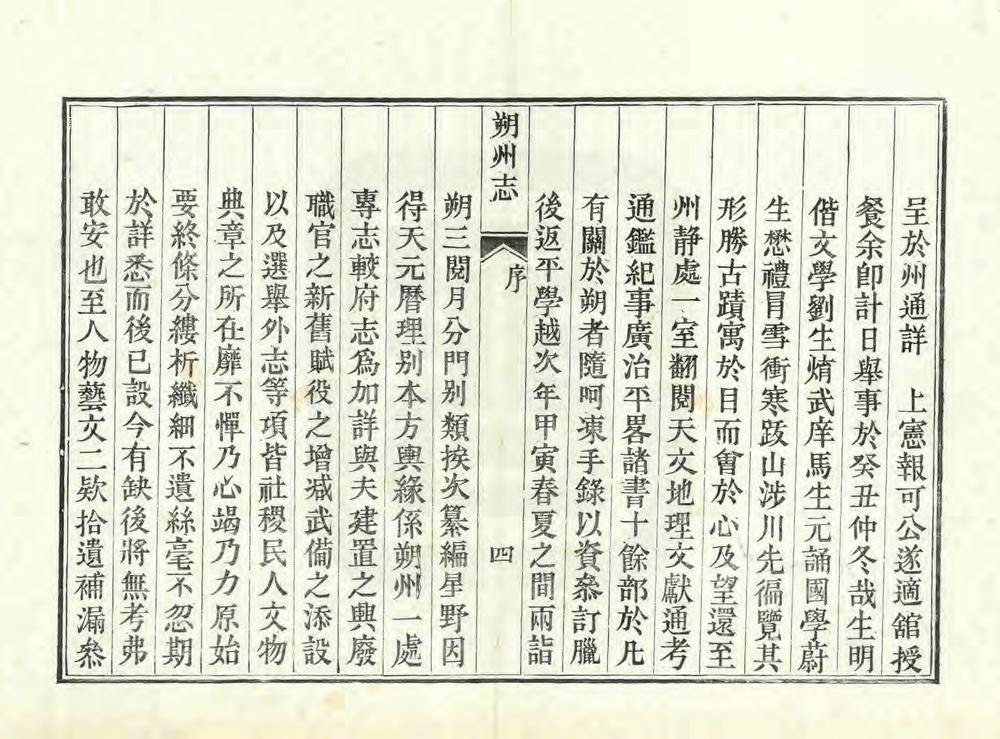 呈於州通詳　上憲報可公遂適舘授
餐余卽計日舉事於癸丑仲冬哉生明
偕文學劉生熵武庠馬生元誦國學蔚
生懋禮冒雪衝寒跋山涉川先徧覽其
形勝古蹟寓於目而會於心及望還至
州静處一室翻閱天文地理文獻通考
通鑑紀事廣治平畧諸書十餘部於凡
有關於朔者隨呵凍手錄以資叅訂臘
後返平學越次年甲寅春夏之間兩詣
朔州志　序　四
朔三閱月分門别類挨次纂編星野因
得天元曆理别本方輿緣係朔州一處
專志較府志爲加詳與夫建置之興廢
職官之新舊賦役之增减武備之添設
以及選舉外志等項皆社稷民人文物
典章之所在靡不憚乃心竭乃力原始
要終條分縷析纖細不遺絲毫不忽期
於詳悉而後已設今有缺後將無考弗
敢安也至人物藝文二欵拾遺補漏叅